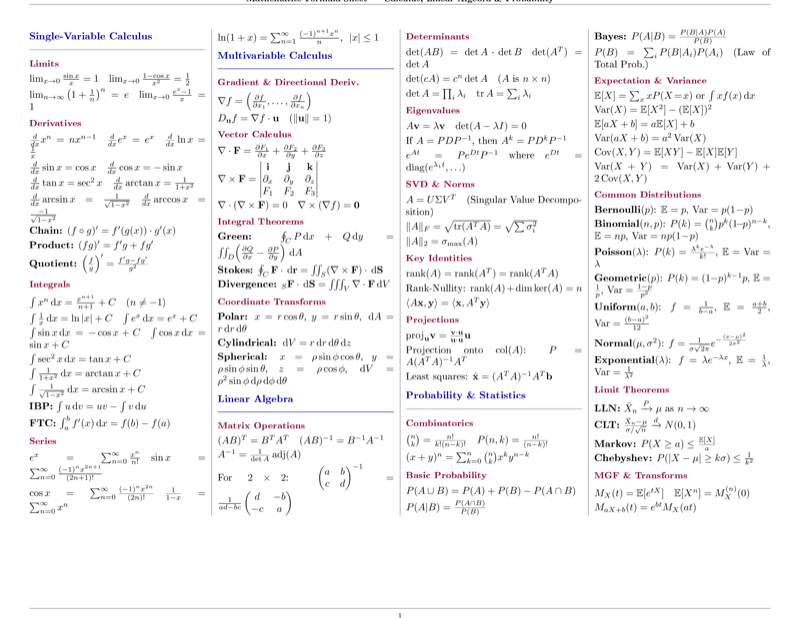 Mathematics Formula Sheet — Calculus, Linear Algebra & Probability
Single-Variable Calculus
Limits
lim_{x→0} \frac{sin x}{x} = 1   lim_{x→0} \frac{1−cos x}{x²} = \frac{1}{2}
lim_{n→∞} (1 + \frac{1}{n})^n = e   lim_{x→0} \frac{e^x−1}{x} =
1
Derivatives
\frac{d}{dx} x^n = nx^{n−1}   \frac{d}{dx} e^x = e^x   \frac{d}{dx} ln x =
\frac{1}{x}
\frac{d}{dx} sin x = cos x   \frac{d}{dx} cos x = − sin x
\frac{d}{dx} tan x = sec² x   \frac{d}{dx} arctan x = \frac{1}{1+x²}
\frac{d}{dx} arcsin x = \frac{1}{√{1−x²}}   \frac{d}{dx} arccos x =
\frac{−1}{√{1−x²}}
Chain: (f ∘ g)′ = f′(g(x)) · g′(x)
Product: (fg)′ = f′g + fg′
Quotient: (\frac{f}{g})′ = \frac{f′g−fg′}{g²}
Integrals
∫ x^n dx = \frac{x^{n+1}}{n+1} + C   (n ≠ −1)
∫ \frac{1}{x} dx = ln |x| + C   ∫ e^x dx = e^x + C
∫ sin x dx = − cos x + C   ∫ cos x dx =
sin x + C
∫ sec² x dx = tan x + C
∫ \frac{1}{1+x²} dx = arctan x + C
∫ \frac{1}{√{1−x²}} dx = arcsin x + C
IBP: ∫ u dv = uv − ∫ v du
FTC: ∫_a^b f′(x) dx = f(b) − f(a)
Series
e^x = ∑_{n=0}^∞ \frac{x^n}{n!}   sin x =
∑_{n=0}^∞ \frac{(−1)^n x^{2n+1}}{(2n+1)!}
cos x = ∑_{n=0}^∞ \frac{(−1)^n x^{2n}}{(2n)!}   \frac{1}{1−x} =
∑_{n=0}^∞ x^n
ln(1 + x) = ∑_{n=1}^∞ \frac{(−1)^{n+1} x^n}{n}, |x| ≤ 1
Multivariable Calculus
Gradient & Directional Deriv.
∇f = (\frac{∂f}{∂x₁}, . . . , \frac{∂f}{∂x_n})
D_u f = ∇f · u   (‖u‖ = 1)
Vector Calculus
∇ · F = \frac{∂F₁}{∂x} + \frac{∂F₂}{∂y} + \frac{∂F₃}{∂z}
| i j k |
∇ × F = | ∂_x ∂_y ∂_z |
| F₁ F₂ F₃ |
∇ · (∇ × F) = 0   ∇ × (∇f) = 0
Integral Theorems
Green: ∮_C P dx + Q dy =
∬_D (\frac{∂Q}{∂x} − \frac{∂P}{∂y}) dA
Stokes: ∮_C F · dr = ∬_S (∇ × F) · dS
Divergence: _S F · dS = ∭_V ∇ · F dV
Coordinate Transforms
Polar: x = r cos θ, y = r sin θ, dA =
r dr dθ
Cylindrical: dV = r dr dθ dz
Spherical: x = ρ sin ϕ cos θ, y =
ρ sin ϕ sin θ, z = ρ cos ϕ, dV =
ρ² sin ϕ dρ dϕ dθ
Linear Algebra
Matrix Operations
(AB)^T = B^T A^T   (AB)^{−1} = B^{−1}A^{−1}
A^{−1} = \frac{1}{det A} adj(A)
For 2 × 2: \begin{pmatrix} a & b \\ c & d \end{pmatrix}^{−1} =
\frac{1}{ad−bc} \begin{pmatrix} d & −b \\ −c & a \end{pmatrix}
Determinants
det(AB) = det A · det B   det(A^T) =
det A
det(cA) = c^n det A   (A is n × n)
det A = ∏_i λ_i   tr A = ∑_i λ_i
Eigenvalues
Av = λv   det(A − λI) = 0
If A = PDP^{−1}, then A^k = PD^kP^{−1}
e^{At} = Pe^{Dt}P^{−1} where e^{Dt} =
diag(e^{λ₁t}, . . .)
SVD & Norms
A = UΣV^T   (Singular Value Decompo-
sition)
‖A‖_F = √{tr(A^T A)} = √{∑ σ_i²}
‖A‖₂ = σ_max(A)
Key Identities
rank(A) = rank(A^T) = rank(A^T A)
Rank-Nullity: rank(A) + dim ker(A) = n
⟨Ax, y⟩ = ⟨x, A^T y⟩
Projections
proj_u v = \frac{v·u}{u·u} u
Projection onto col(A): P =
A(A^T A)^{−1}A^T
Least squares: x̂ = (A^T A)^{−1}A^T b
Probability & Statistics
Combinatorics
\binom{n}{k} = \frac{n!}{k!(n−k)!}   P(n, k) = \frac{n!}{(n−k)!}
(x + y)^n = ∑_{k=0}^n \binom{n}{k} x^k y^{n−k}
Basic Probability
P(A ∪ B) = P(A) + P(B) − P(A ∩ B)
P(A|B) = \frac{P(A∩B)}{P(B)}
Bayes: P(A|B) = \frac{P(B|A)P(A)}{P(B)}
P(B) = ∑_i P(B|A_i)P(A_i)   (Law of
Total Prob.)
Expectation & Variance
𝔼[X] = ∑_x xP(X = x) or ∫ xf(x) dx
Var(X) = 𝔼[X²] − (𝔼[X])²
𝔼[aX + b] = a𝔼[X] + b
Var(aX + b) = a² Var(X)
Cov(X, Y) = 𝔼[XY] − 𝔼[X]𝔼[Y]
Var(X + Y) = Var(X) + Var(Y) +
2 Cov(X, Y)
Common Distributions
Bernoulli(p): 𝔼 = p, Var = p(1−p)
Binomial(n, p): P(k) = \binom{n}{k} p^k(1−p)^{n−k},
𝔼 = np, Var = np(1−p)
Poisson(λ): P(k) = \frac{λ^k e^{−λ}}{k!}, 𝔼 = Var =
λ
Geometric(p): P(k) = (1−p)^{k−1}p, 𝔼 =
\frac{1}{p}, Var = \frac{1−p}{p²}
Uniform(a, b): f = \frac{1}{b−a}, 𝔼 = \frac{a+b}{2},
Var = \frac{(b−a)²}{12}
Normal(μ, σ²): f = \frac{1}{σ√{2π}} e^{−\frac{(x−μ)²}{2σ²}}
Exponential(λ): f = λe^{−λx}, 𝔼 = \frac{1}{λ},
Var = \frac{1}{λ²}
Limit Theorems
LLN: X̄_n \xrightarrow{P} μ as n → ∞
CLT: \frac{X̄_n−μ}{σ/√n} \xrightarrow{d} N(0, 1)
Markov: P(X ≥ a) ≤ \frac{𝔼[X]}{a}
Chebyshev: P(|X − μ| ≥ kσ) ≤ \frac{1}{k²}
MGF & Transforms
M_X(t) = 𝔼[e^{tX}]   𝔼[X^n] = M_X^{(n)}(0)
M_{aX+b}(t) = e^{bt} M_X(at)
1